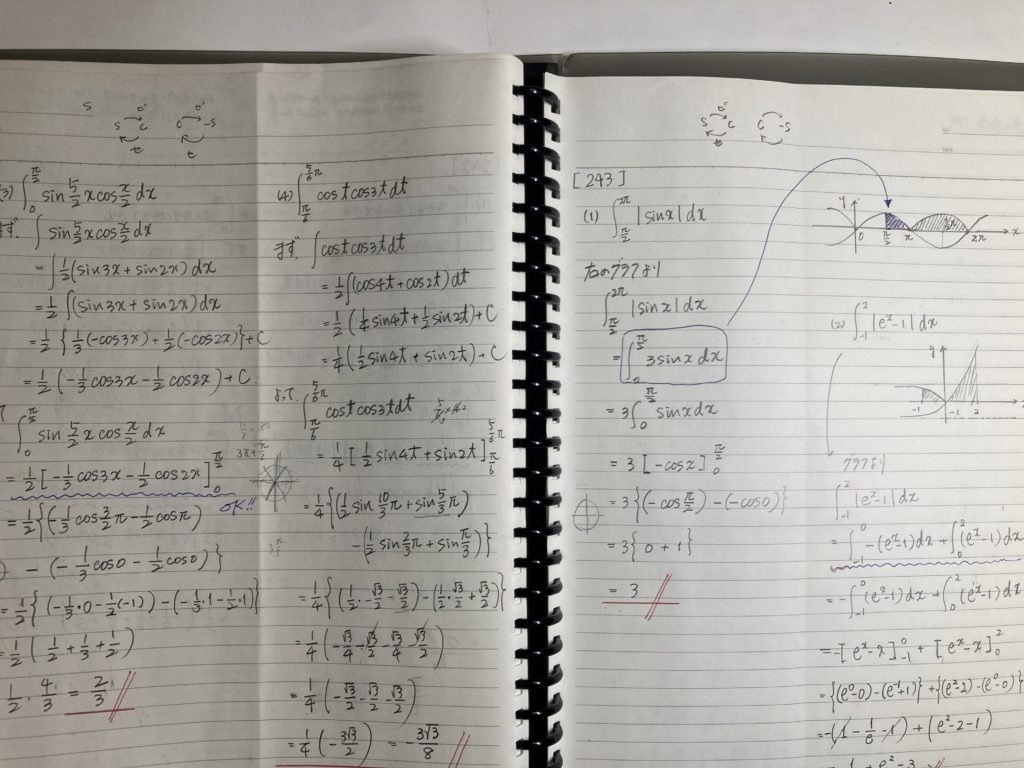 S
S C
C -S
(3) ∫₀^{π/2} sin 5/2 x cos x/2 dx
まず、∫ sin 5/2 x cos x/2 dx
= ∫ 1/2 (sin3x + sin2x) dx
= 1/2 ∫ (sin3x + sin2x) dx
= 1/2 { 1/3 (-cos3x) + 1/2 (-cos2x) } + C
= 1/2 ( -1/3 cos3x - 1/2 cos2x ) + C
∫₀^{π/2} sin 5/2 x cos x/2 dx
= 1/2 [ -1/3 cos3x - 1/2 cos2x ]₀^{π/2}
OK!!
= 1/2 { ( -1/3 cos 3/2 π - 1/2 cosπ )
- ( -1/3 cos0 - 1/2 cos0 ) }
= 1/2 { ( -1/3・0 - 1/2 (-1) ) - ( -1/3・1 - 1/2・1 ) }
= 1/2 ( 1/2 + 1/3 + 1/2 )
1/2 ・ 4/3 = 2/3
(4) ∫_{π/6}^{5/6 π} cost cos3t dt
まず、∫ cost cos3t dt
= 1/2 ∫ (cos4t + cos2t) dt
= 1/2 ( 1/4 sin4t + 1/2 sin2t ) + C
= 1/4 ( 1/2 sin4t + sin2t ) + C
よって、∫_{π/6}^{5/6 π} cost cos3t dt
= 1/4 [ 1/2 sin4t + sin2t ]_{π/6}^{5/6 π}
= 1/4 { ( 1/2 sin 10/3 π + sin 5/3 π )
- ( 1/2 sin 2/3 π + sin π/3 ) }
= 1/4 { ( 1/2・-√3/2 - √3/2 ) - ( 1/2・√3/2 + √3/2 ) }
= 1/4 ( -√3/4 - √3/2 - √3/4 - √3/2 )
= 1/4 ( -√3/2 - √3/2 - √3/2 )
= 1/4 ( -3√3/2 ) = -3√3/8
S C
C -S
[243]
(1) ∫_{π/2}^{2π} |sinx| dx
y
0 π/2 π 2π x
右のグラフより
∫_{π/2}^{2π} |sinx| dx
= ∫₀^{π/2} 3sinx dx
= 3 ∫₀^{π/2} sinx dx
= 3 [ -cosx ]₀^{π/2}
= 3 { ( -cos π/2 ) - ( -cos0 ) }
= 3 { 0 + 1 }
= 3
(2) ∫_{-1}^{2} |eˣ-1| dx
y
-1 -1 2
グラフより
∫_{-1}^{2} |eˣ-1| dx
= ∫_{-1}^{0} -(eˣ-1) dx + ∫₀² (eˣ-1) dx
= -∫_{-1}^{0} (eˣ-1) dx + ∫₀² (eˣ-1) dx
= -[ eˣ-x ]_{-1}^{0} + [ eˣ-x ]₀²
= {(e⁰-0) - (e⁻¹+1)} + {(e²-2) - (e⁰-0)}